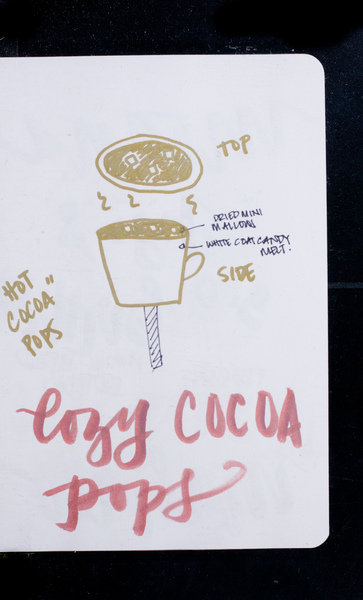 TOP
DRIED MINI
MALLOWS
WHITE COAT CANDY
MELT.
SIDE
HOT
COCOA"
POPS
Cozy COCOA
pops